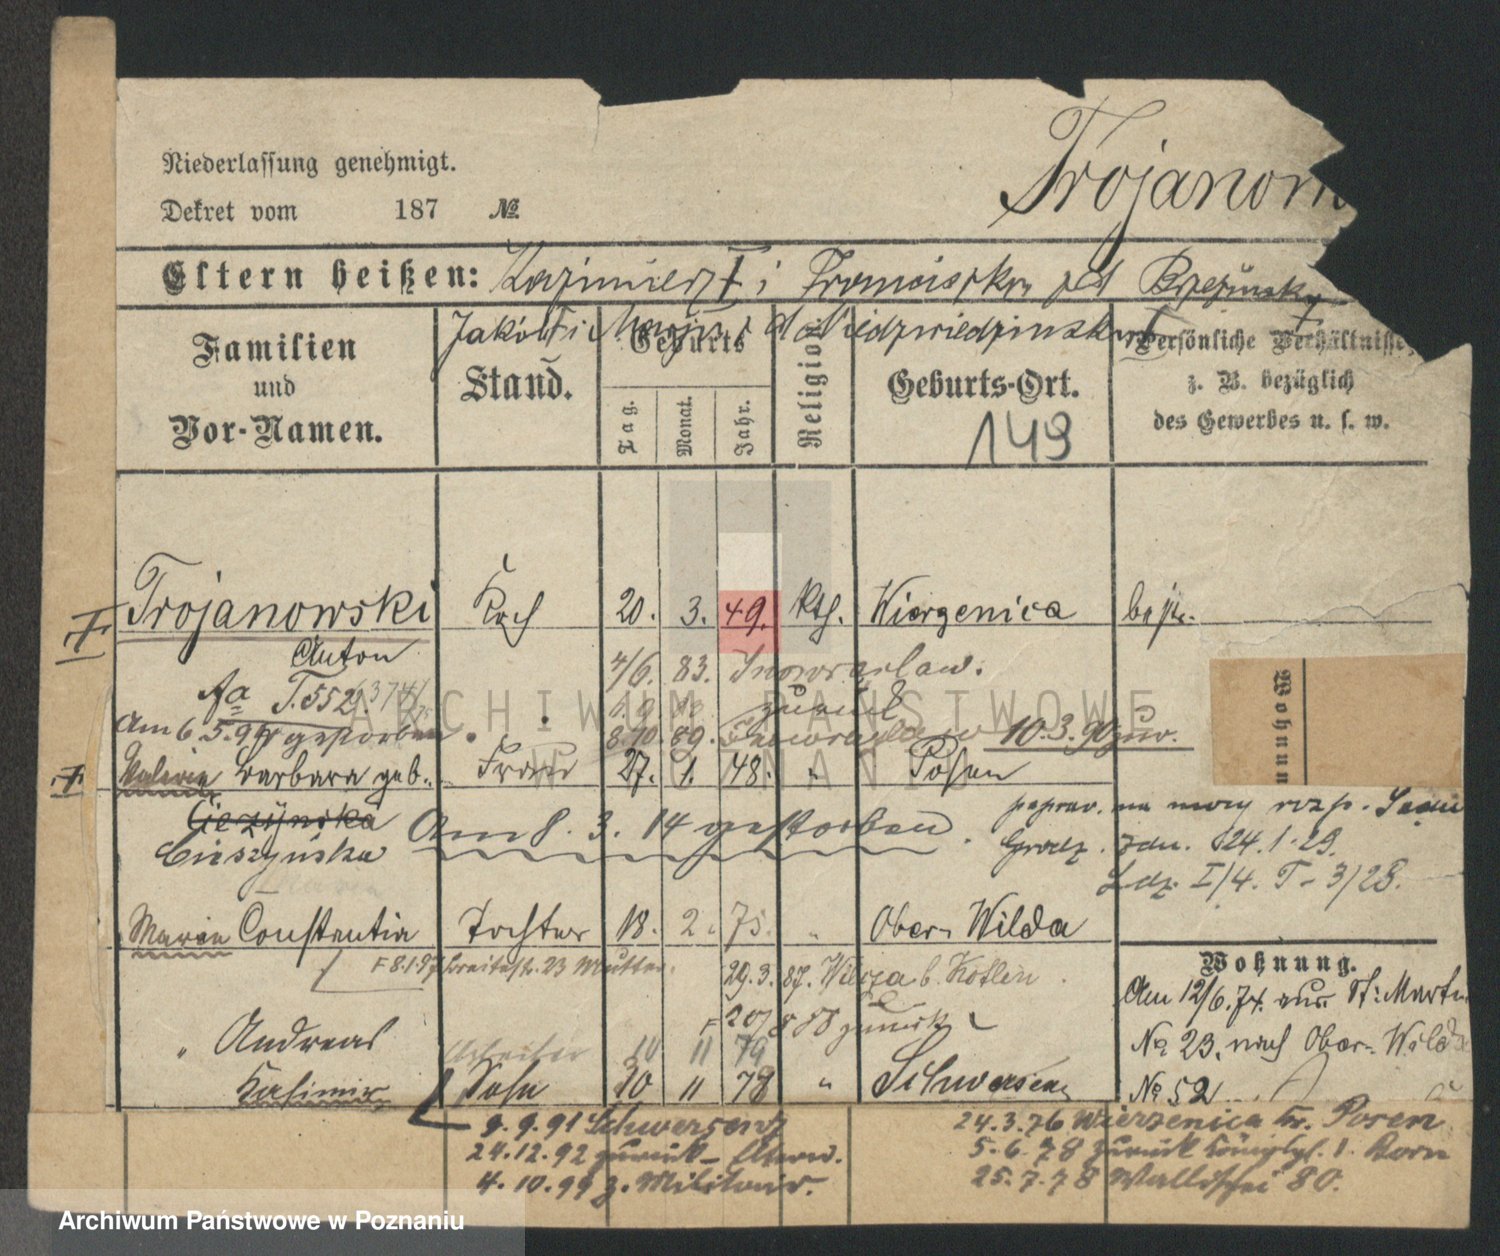 Niederlassung genehmigt.
Dekret vom 187 №
Trojanow
Eltern heißen: Kazimierz i Franciszka zd Brzezińsk
Jakób i Maryja d Niedzwiedzinsk
Familien und Vor-Namen.
Stand.
Geburts
Tag.
Monat.
Jahr.
Religion
Geburts-Ort.
149
Persönliche Verhältnisse
z. B. bezüglich
des Gewerbes u. s. w.
Trojanowski Koch 20. 3. 49. kth. Wierzenica
Anton 4/6. 83. Inowraclaw.
T. 552. zurück
Am 6.5.94 gestorben 8.10.89. Inowraclaw 10.3.90 zur.
Valerie Barbara geb. Frau 27. 1. 48. " Posen
Wohnung
Ciezynska
Cieszyńska Am 8. 3. 14 gestorben.
poprav. na mocy rozp. Sądu
Grodz. zdn. 24.1.29.
Ldz. I/4. T-3/28.
Marie Constantia Tochter 18. 2. 75. " Ober-Wilda
Wohnung.
8.1.97 Breitestr. 23 Mutter. 29.3.87. b. Kotlin
Am 12/6.74. aus St: Martin
20/8 88 zurück
№ 23. nach Ober-Wilda
№ 52
" Andreas Arbeiter 10 11 79
Kasimir Sohn 30 11 78 " Schwersenz
9.9.91 Schwersenz
24.12.92 zurück - Eltern.
4.10.99 z. Militair.
24.3.76 Wierzenica Kr. Posen
5.6.78 zurück Königspl. 1. Korn
25.7.78 Wallischei 80.
ARCHIWUM PAŃSTWOWE
W POZNANIU
Archiwum Państwowe w Poznaniu